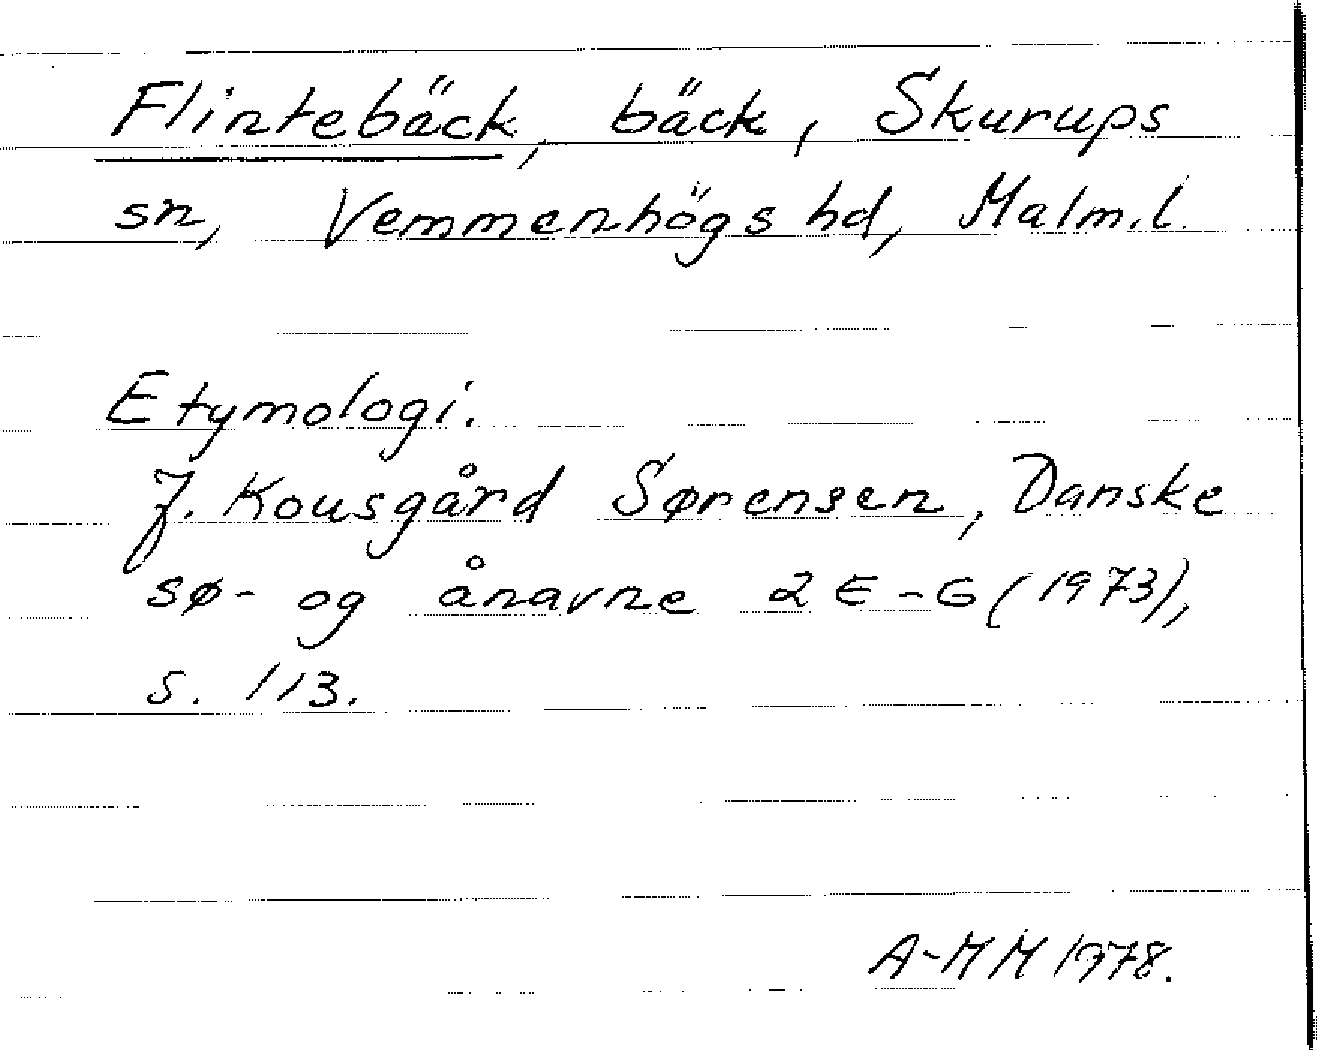 Flintebäck, bäck, Skurups
sn, Vemmenhögs hd, Malm.l.
Etymologi.
J. Kousgård Sørensen, Danske
sø- og ånavne 2 E-G (1973),
s. 113.
A-MM 1978.